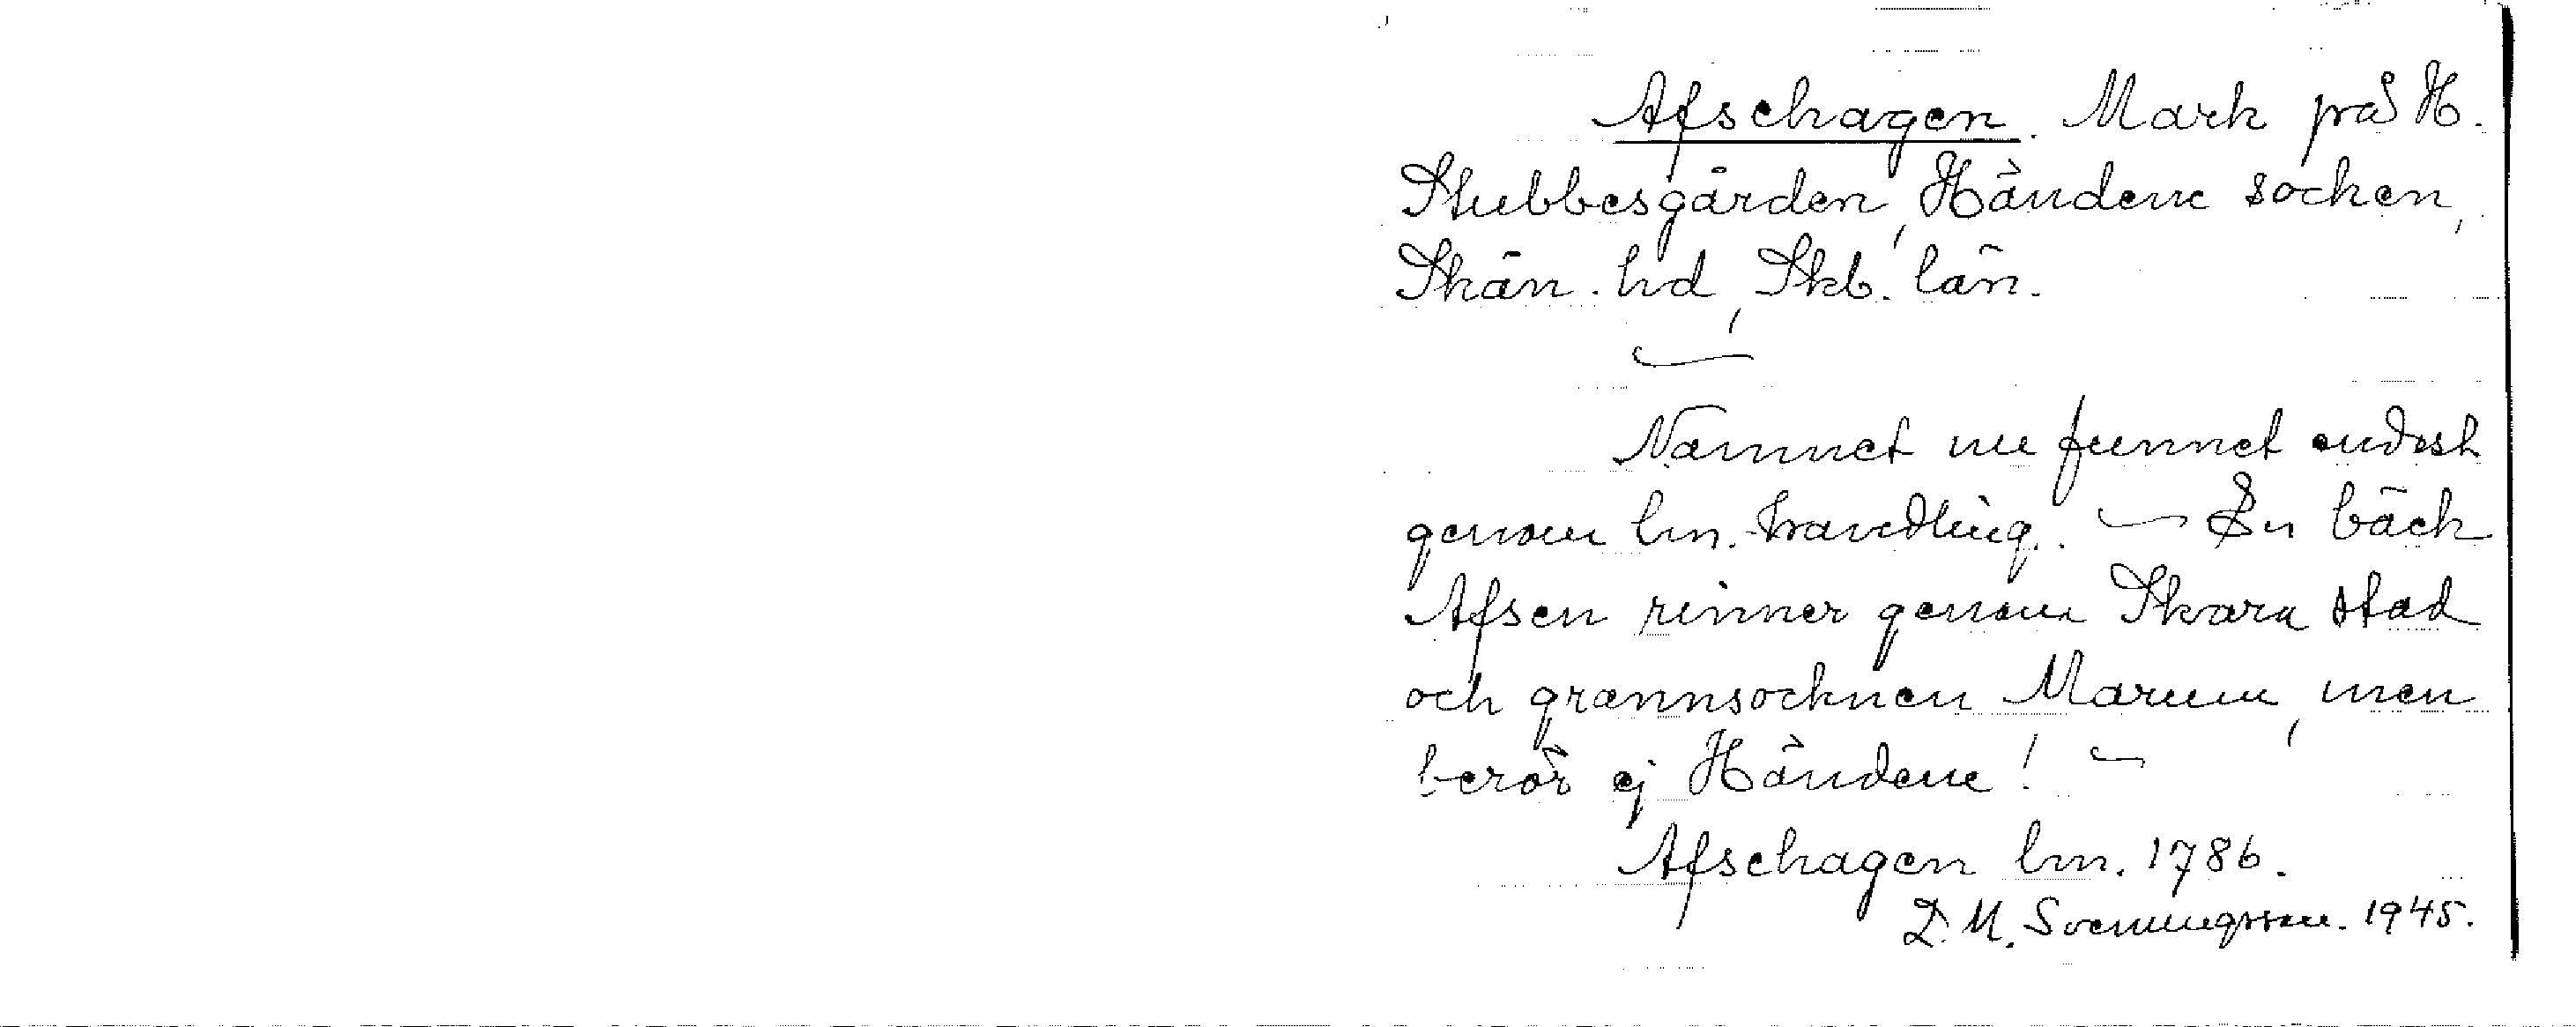 Afschagen. Mark på H.
Stubbesgården, Händene socken,
Skån. hd, Skb. län.
Namnet nu funnet endast
genom lm. handling. — En bäck
Afsen rinner genom Skara stad
och grannsocknen Marum, men
berör ej Händene! —
Afschagen lm. 1786.
D. M. Svenungsson. 1945.